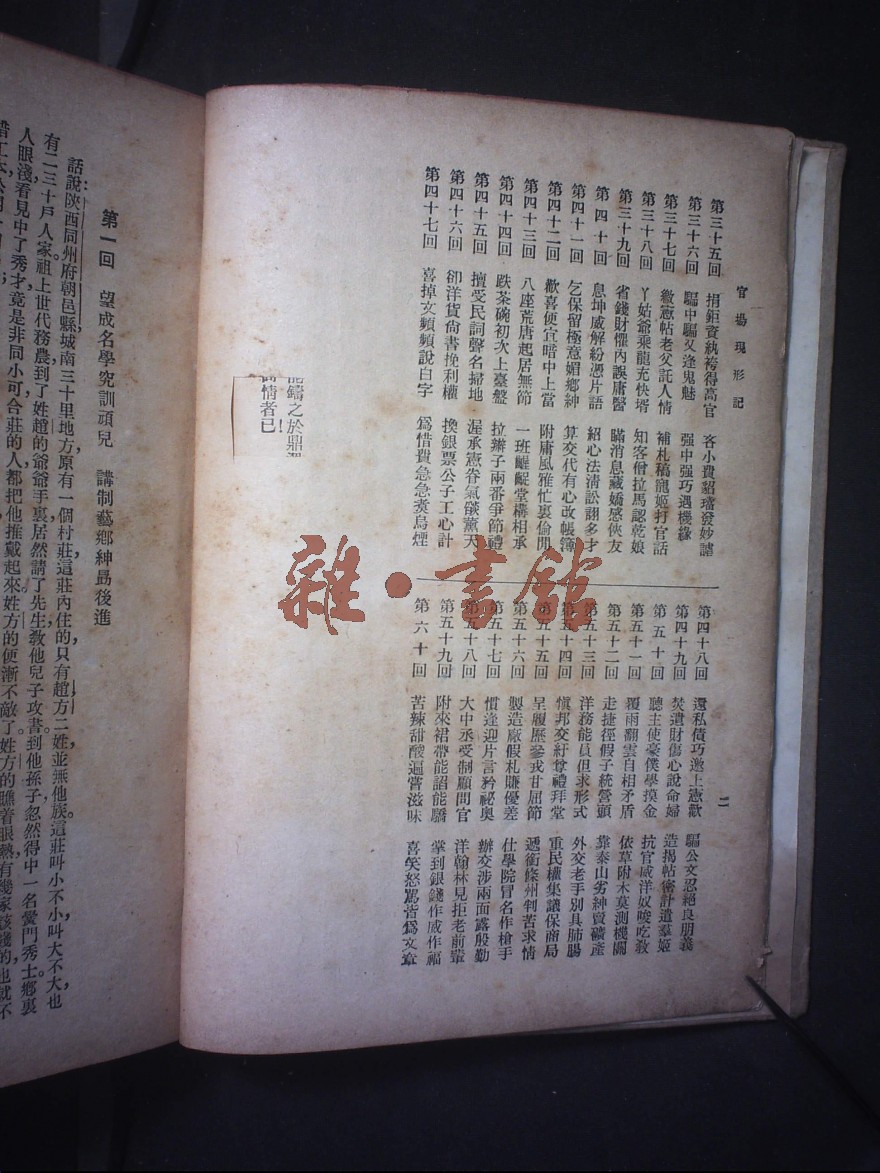 官場現形記
第三十五回 捐鉅資紈袴得高官 吝小費貂璫發妙謔
第三十六回 騙中騙又逢鬼魅 强中强巧遇機緣
第三十七回 繳憲帖老父託人情 補札稿寵姬打官話
第三十八回 丫姑爺乘龍充快壻 知客僧拉馬認乾娘
第三十九回 省錢財懼內誤庸醫 瞞消息藏嬌感俠友
第四十回 息坤威解紛憑片語 紹心法清訟詡多才
第四十一回 乞保留極意媚鄉紳 算交代有心改帳簿
第四十二回 歡喜便宜暗中上當 附庸風雅忙裏偸閒
第四十三回 八座荒唐起居無節 一班齷齪堂構相承
第四十四回 跌茶碗初次上臺盤 拉辮子兩番爭節禮
第四十五回 擅受民詞聲名掃地 渥承憲眷氣燄薰天
第四十六回 卻洋貨尙書挽利權 換銀票公子工心計
第四十七回 喜掉文頻頻說白字 爲惜費急急煑烏煙
第四十八回 還私債巧邀上憲歡 騙公文忍絕良朋義
第四十九回 焚遺財傷心說命婦 造揭帖密計遣羣姬
第五十回 聽主使豪僕學摸金 抗官威洋奴唆吃敎
第五十一回 覆雨翻雲自相矛盾 依草附木莫測機關
第五十二回 走捷徑假子統營頭 靠泰山劣紳賣礦產
第五十三回 洋務能員但求形式 外交老手別具肺腸
第五十四回 愼邦交紆尊禮拜堂 重民權集議保商局
第五十五回 呈履歷參戎甘屈節 遞銜條州判苦求情
第五十六回 製造廠假札賺優差 仕學院冒名作槍手
第五十七回 慣逢迎片言矜祕奧 辦交涉兩面露殷勤
第五十八回 大中丞受制顧問官 洋翰林見拒老前輩
第五十九回 附來裙帶能諂能驕 掌到銀錢作威作福
第六十回 苦辣甜酸遍嘗滋味 喜笑怒罵皆爲文章
二
鑄之於鼎
情者已
雜·書館
第一回 望成名學究訓頑兒 講制藝鄉紳勗後進
話說陝西同州府朝邑縣城南三十里地方,原有一個村莊,這莊內住的只有趙方二姓,並無他族。這莊叫小不小,叫大不大,也
有二三十戶人家,祖上世代務農,到了姓趙的爺爺手裏,居然請了先生,敎他兒子攻書,到他孫子忽然得中一名黌門秀士,鄉裏
人眼淺,看見中了秀才,竟是非同小可,合莊的人都把他推戴起來,姓方的便漸不敵了。姓方的瞧着眼熱,有幾家該錢的,也就不